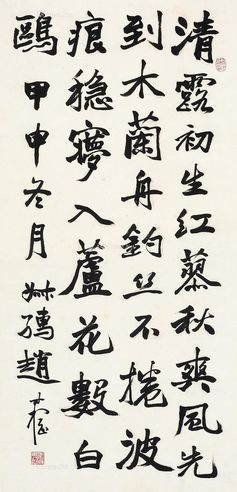 清露初生紅蓼秋爽風先
到木蘭舟釣絲不捲波
痕穩夢入蘆花數白
鷗甲申冬月叔孺趙時棡